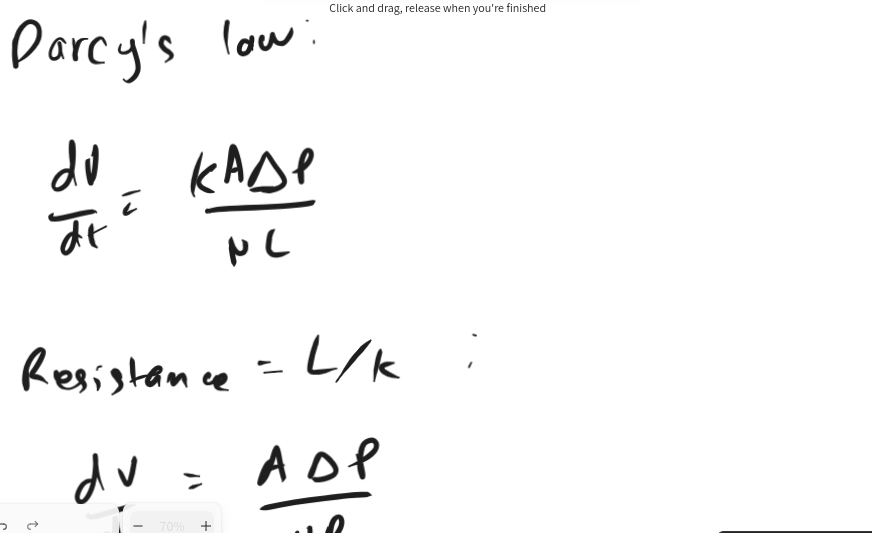 Click and drag, release when you're finished
Darcy's law:
dV/dt = kAΔP/μL
Resistance = L/k ;
dV = AΔP
70%